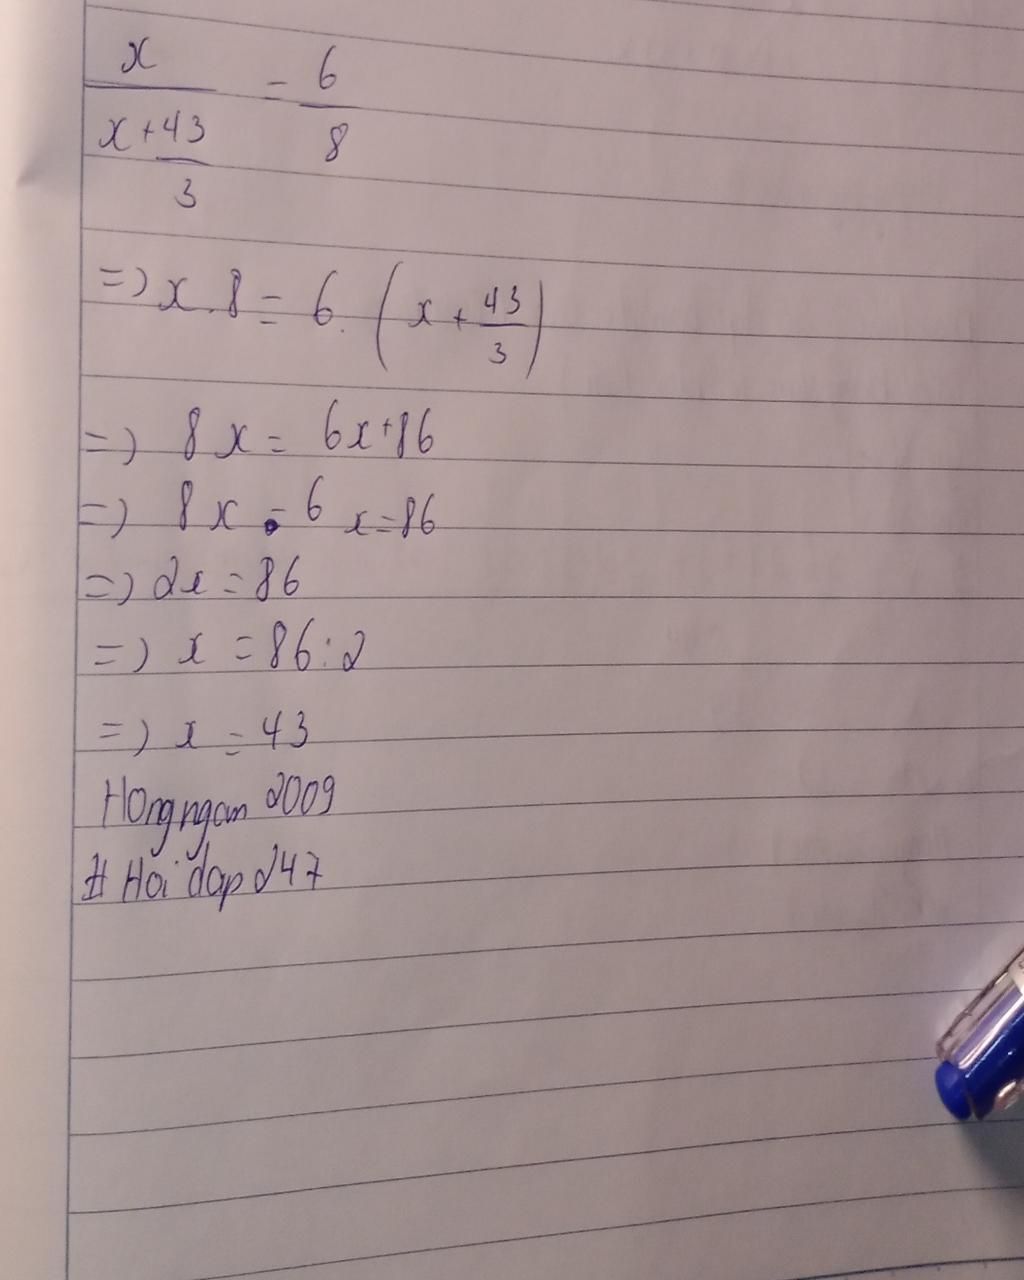 x / (x + 43/3) = 6/8
=> x . 8 = 6 . (x + 43/3)
=> 8x = 6x + 86
=> 8x - 6x = 86
=> 2x = 86
=> x = 86 : 2
=> x = 43
Hongngam 2009
# Hoi dap 247